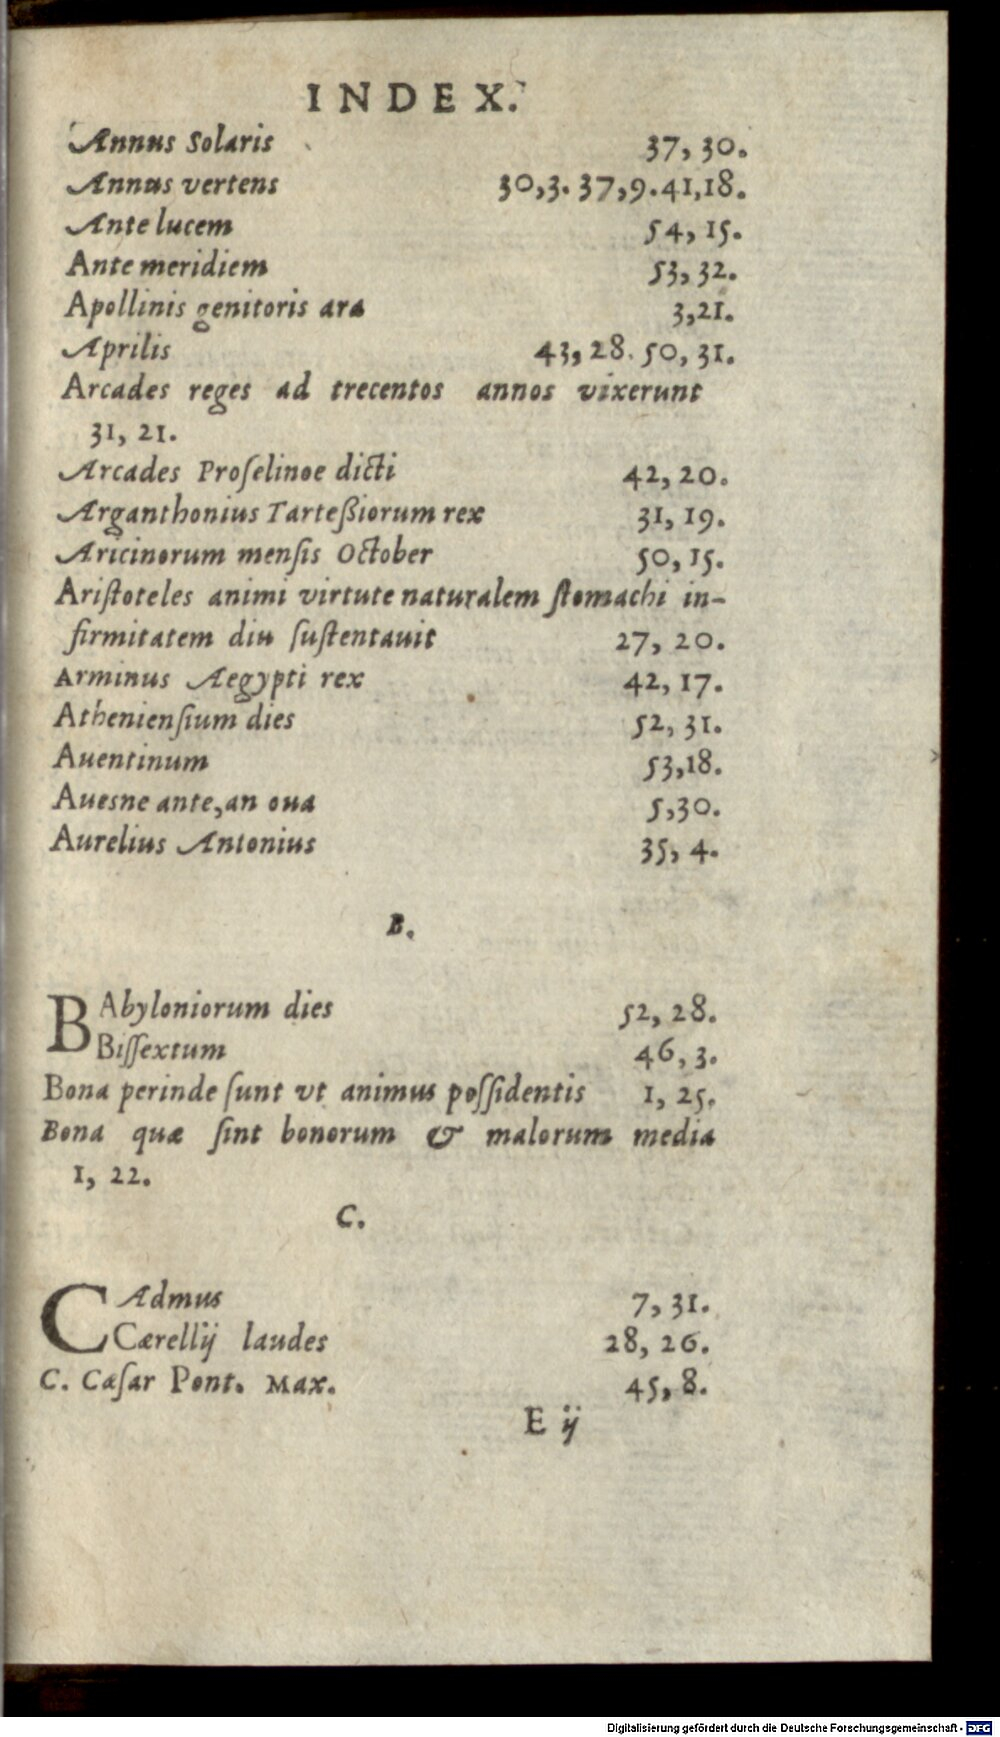 INDEX.
Annus Solaris 37, 30.
Annus vertens 30,3. 37,9. 41,18.
Ante lucem 54, 15.
Ante meridiem 53, 32.
Apollinis genitoris ara 3,21.
Aprilis 43, 28. 50, 31.
Arcades reges ad trecentos annos vixerunt
31, 21.
Arcades Proſelinoe dicti 42, 20.
Arganthonius Tarteßiorum rex 31, 19.
Aricinorum menſis October 50, 15.
Ariſtoteles animi virtute naturalem ſtomachi in-
firmitatem diu ſuſtentauit 27, 20.
Arminus Aegypti rex 42, 17.
Athenienſium dies 52, 31.
Auentinum 53,18.
Auesne ante, an oua 5,30.
Aurelius Antonius 35, 4.
B.
BAbyloniorum dies 52, 28.
Biſſextum 46, 3.
Bona perinde ſunt vt animus poſſidentis 1, 25.
Bona quæ ſint bonorum & malorum media
1, 22.
C.
CAdmus 7, 31.
Cærellij laudes 28, 26.
C. Cæſar Pont. Max. 45, 8.
E ij
Digitalisierung gefördert durch die Deutsche Forschungsgemeinschaft - DFG